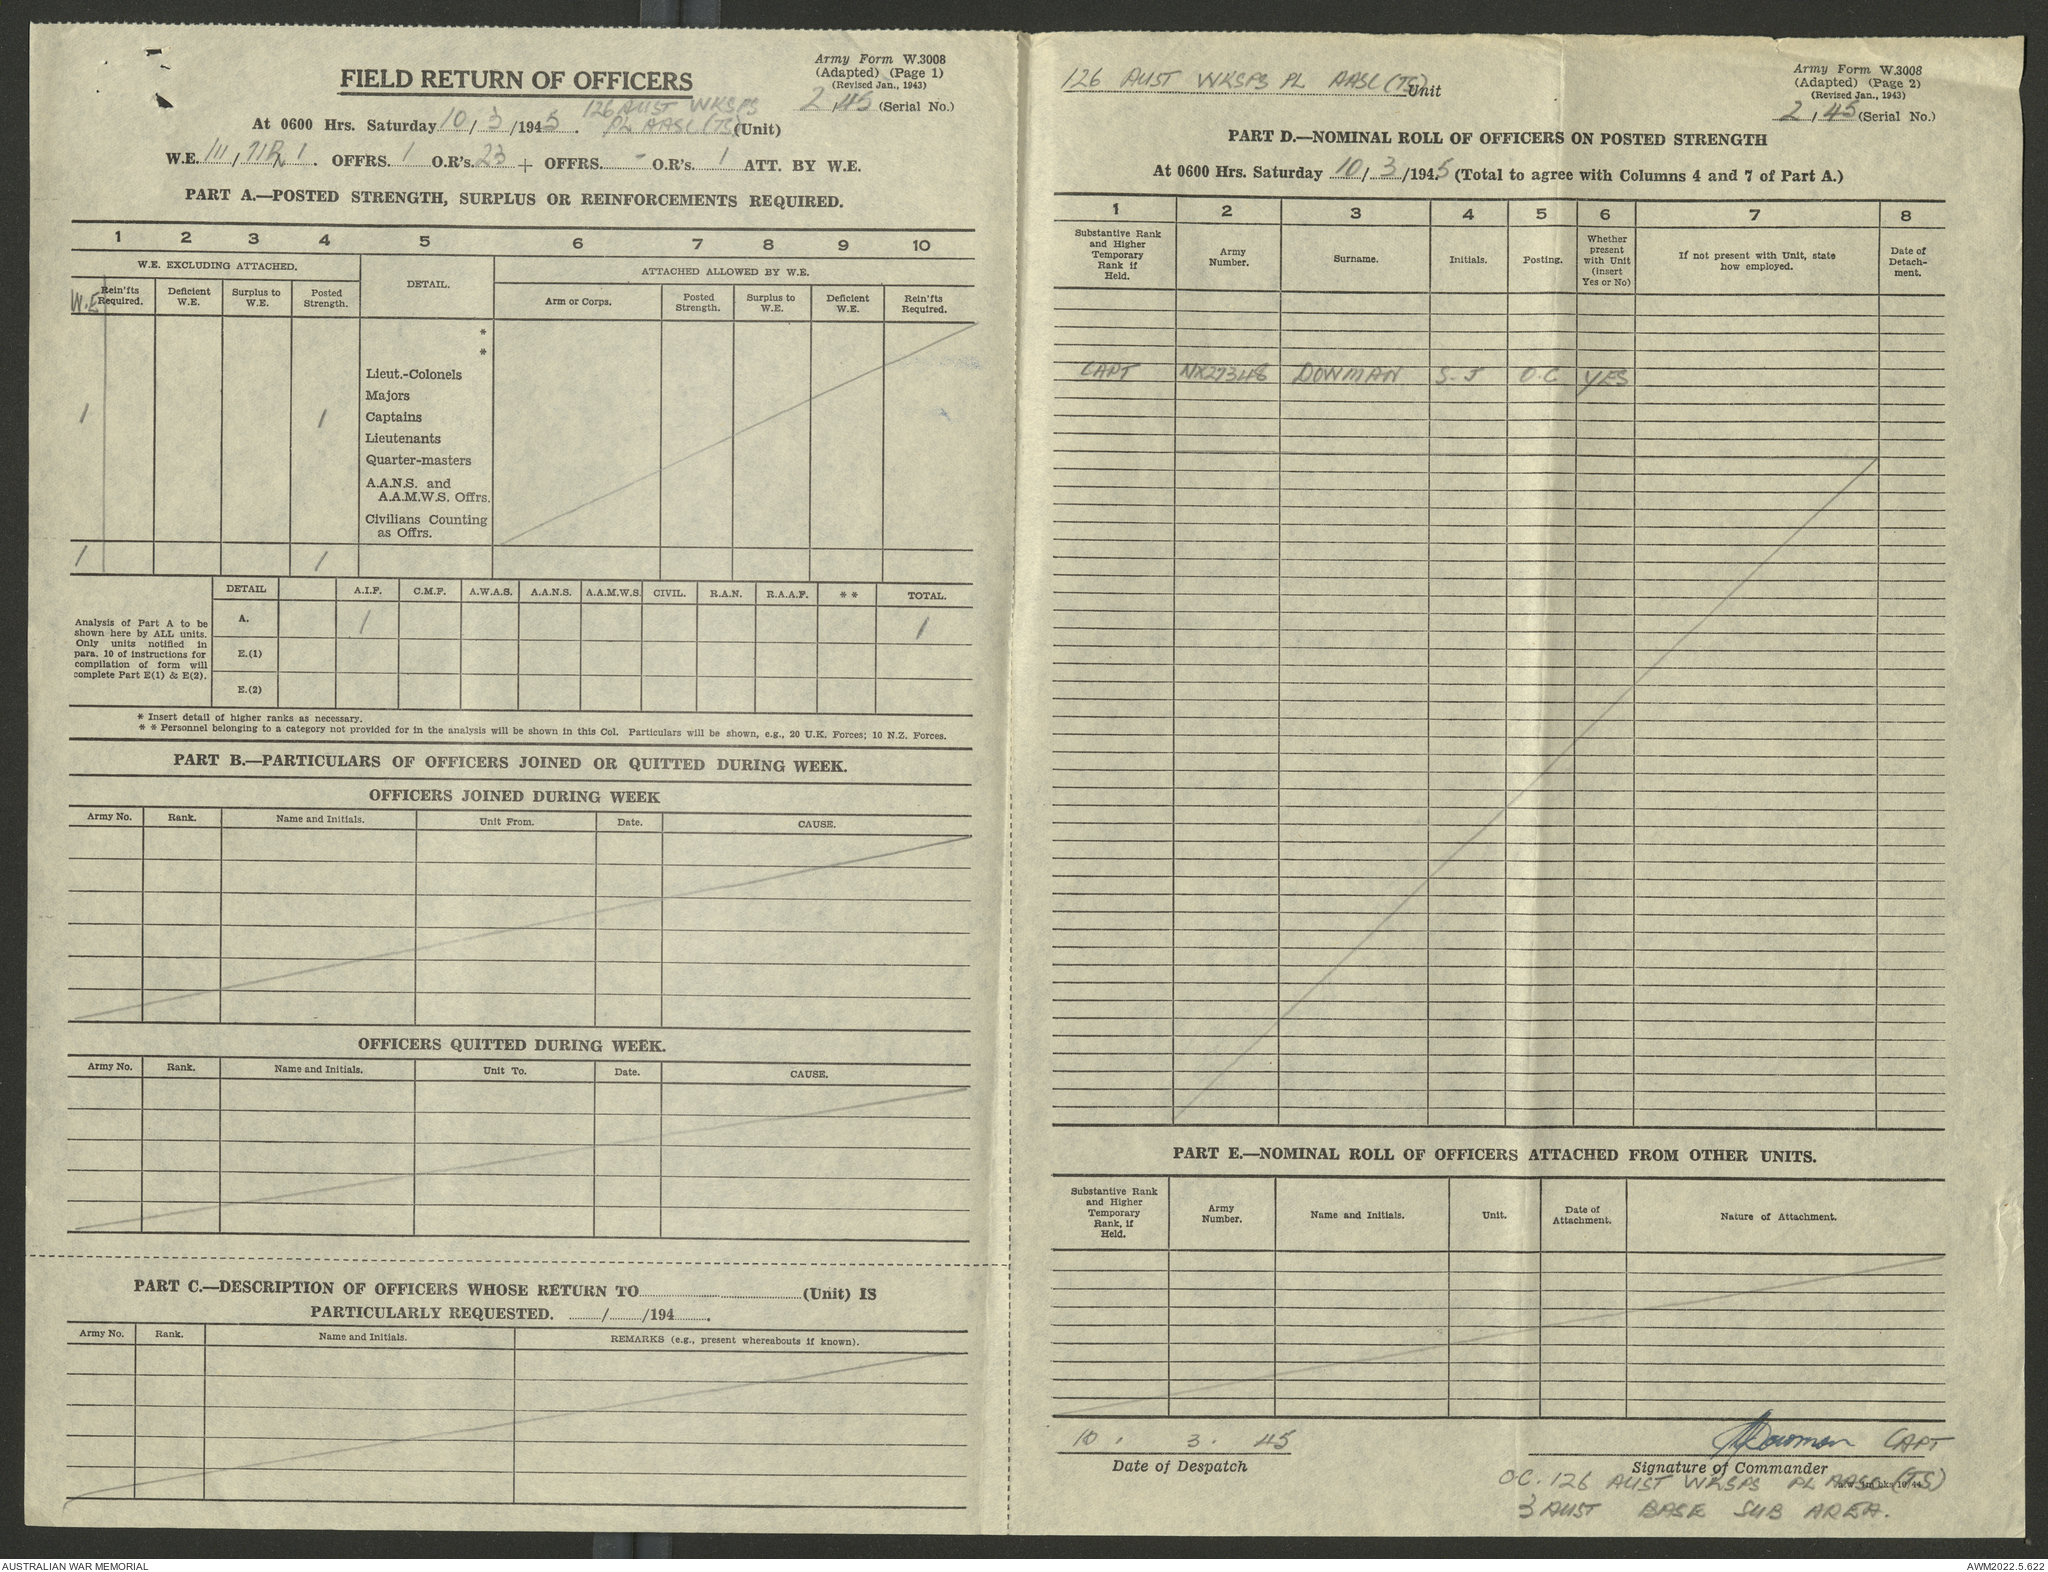 Army Form W.3008
(Adapted) (Page 1)
(Revised Jan., 1943)
2, 45 (Serial No.)
FIELD RETURN OF OFFICERS
126 AUST WKSPS
At 0600 Hrs. Saturday 10/3/1945. PL AASC (TS) (Unit)
W.E. III, 1. OFFRS. 1 O.R's. 23 + OFFRS. - O.R's. 1 ATT. BY W.E.
PART A.—POSTED STRENGTH, SURPLUS OR REINFORCEMENTS REQUIRED.
1 2 3 4 5 6 7 8 9 10
W.E. EXCLUDING ATTACHED. DETAIL. ATTACHED ALLOWED BY W.E.
W.E Rein'fts Required. Deficient W.E. Surplus to W.E. Posted Strength. Arm or Corps. Posted Strength. Surplus to W.E. Deficient W.E. Rein'fts Required.
*
*
Lieut.-Colonels
Majors
1 1 Captains
Lieutenants
Quarter-masters
A.A.N.S. and
A.A.M.W.S. Offrs.
Civilians Counting
as Offrs.
1 1
DETAIL A.I.F. C.M.F. A.W.A.S. A.A.N.S. A.A.M.W.S. CIVIL. R.A.N. R.A.A.F. * * TOTAL.
Analysis of Part A to be
shown here by ALL units.
Only units notified in
para. 10 of instructions for
compilation of form will
complete Part E(1) & E(2).
A. 1 1
E.(1)
E.(2)
* Insert detail of higher ranks as necessary.
* * Personnel belonging to a category not provided for in the analysis will be shown in this Col. Particulars will be shown, e.g., 20 U.K. Forces; 10 N.Z. Forces.
PART B.—PARTICULARS OF OFFICERS JOINED OR QUITTED DURING WEEK.
OFFICERS JOINED DURING WEEK
Army No. Rank. Name and Initials. Unit From. Date. CAUSE.
OFFICERS QUITTED DURING WEEK.
Army No. Rank. Name and Initials. Unit To. Date. CAUSE.
PART C.—DESCRIPTION OF OFFICERS WHOSE RETURN TO (Unit) IS
PARTICULARLY REQUESTED. / /194 .
Army No. Rank. Name and Initials. REMARKS (e.g., present whereabouts if known).
126 AUST WKSPS PL AASC (TS) Unit
Army Form W.3008
(Adapted) (Page 2)
(Revised Jan., 1943)
2, 45 (Serial No.)
PART D.—NOMINAL ROLL OF OFFICERS ON POSTED STRENGTH
At 0600 Hrs. Saturday 10/3/1945 (Total to agree with Columns 4 and 7 of Part A.)
1 2 3 4 5 6 7 8
Substantive Rank and Higher Temporary Rank if Held. Army Number. Surname. Initials. Posting. Whether present with Unit (insert Yes or No) If not present with Unit, state how employed. Date of Detach-ment.
CAPT NX27348 DOWMAN S. J O.C YES
PART E.—NOMINAL ROLL OF OFFICERS ATTACHED FROM OTHER UNITS.
Substantive Rank and Higher Temporary Rank, if Held. Army Number. Name and Initials. Unit. Date of Attachment. Nature of Attachment.
10 . 3 . 45
Date of Despatch
SJDowman CAPT
Signature of Commander
O.C. 126 AUST WKSPS PL AASC (TS)
3 AUST BASE SUB AREA.
AUSTRALIAN WAR MEMORIAL
AWM2022.5.622